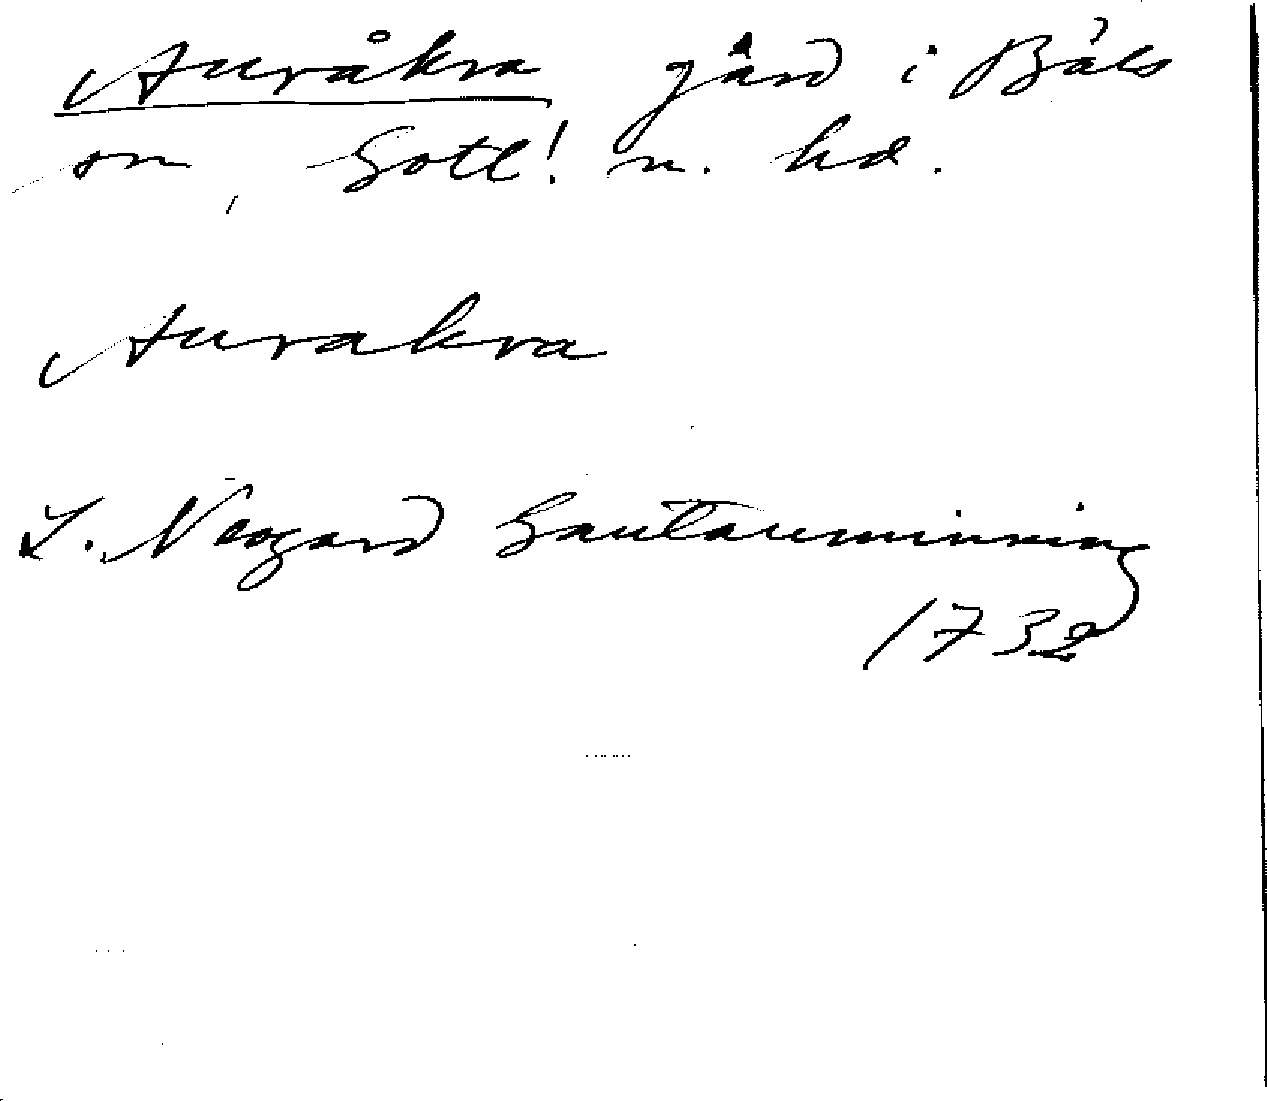 Auråkra gård i Bäls
sn, Gotl! n. hd.
Aurakra
L. Neogard Gautauminning
1732